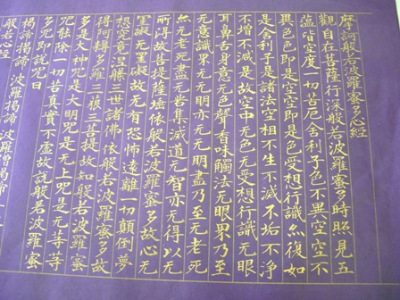 摩訶般若波羅蜜多心經
觀自在菩薩行深般若波羅蜜多時照見五
蘊皆空度一切苦厄舍利子色不異空空不
異色色即是空空即是色受想行識亦復如
是舍利子是諸法空相不生不滅不垢不淨
不增不減是故空中无色无受想行識无眼
耳鼻舌身意无色聲香味觸法无眼界乃至
无意識界无无明亦无无明盡乃至无老死
亦无老死盡无苦集滅道无智亦无得以无
所得故菩提薩埵依般若波羅蜜多故心无
罣礙无罣礙故无有恐怖遠離一切顛倒夢
想究竟涅槃三世諸佛依般若波羅蜜多故
得阿耨多羅三藐三菩提故知般若波羅蜜
多是大神咒是大明咒是无上咒是无等等
咒能除一切苦真實不虛故說般若波羅蜜
多咒即說咒曰
揭諦揭諦 波羅揭諦 波羅僧揭
般若心經